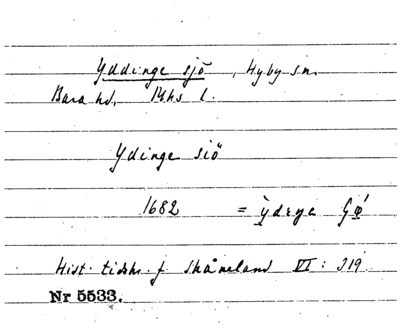 Yddinge sjö, Hyby sn.
Bara hd. Mhs l.
Ydinge siö
1682 =
Hist. tidskr. f. Skåneland VI: 319
Nr 5533.